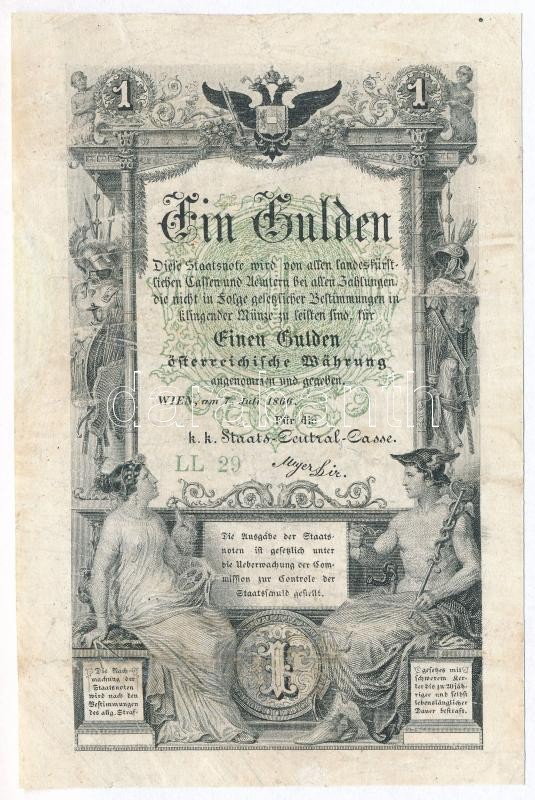 1 1
Ein Gulden
Diese Staatsnote wird von allen landesfürst-
lichen Cassen und Aemtern bei allen Zahlungen,
die nicht in Folge gesetzlicher Bestimmungen in
klingender Münze zu leisten sind, für
Einen Gulden
österreichische Währung
angenommen und gegeben.
WIEN, am 7. Juli 1866.
Für die
k. k. Staats-Central-Casse.
LL 29
Die Ausgabe der Staats-
noten ist gesetzlich unter
die Ueberwachung der Com-
mission zur Controle der
Staatsschuld gestellt.
1
Die Nach-
machung der
Staatsnoten
wird nach den
Bestimmungen
des allg. Straf-
gesetzes mit
schwerem Ker-
ker bis zu 20jäh-
riger und selbst
lebenslänglicher
Dauer bestraft.